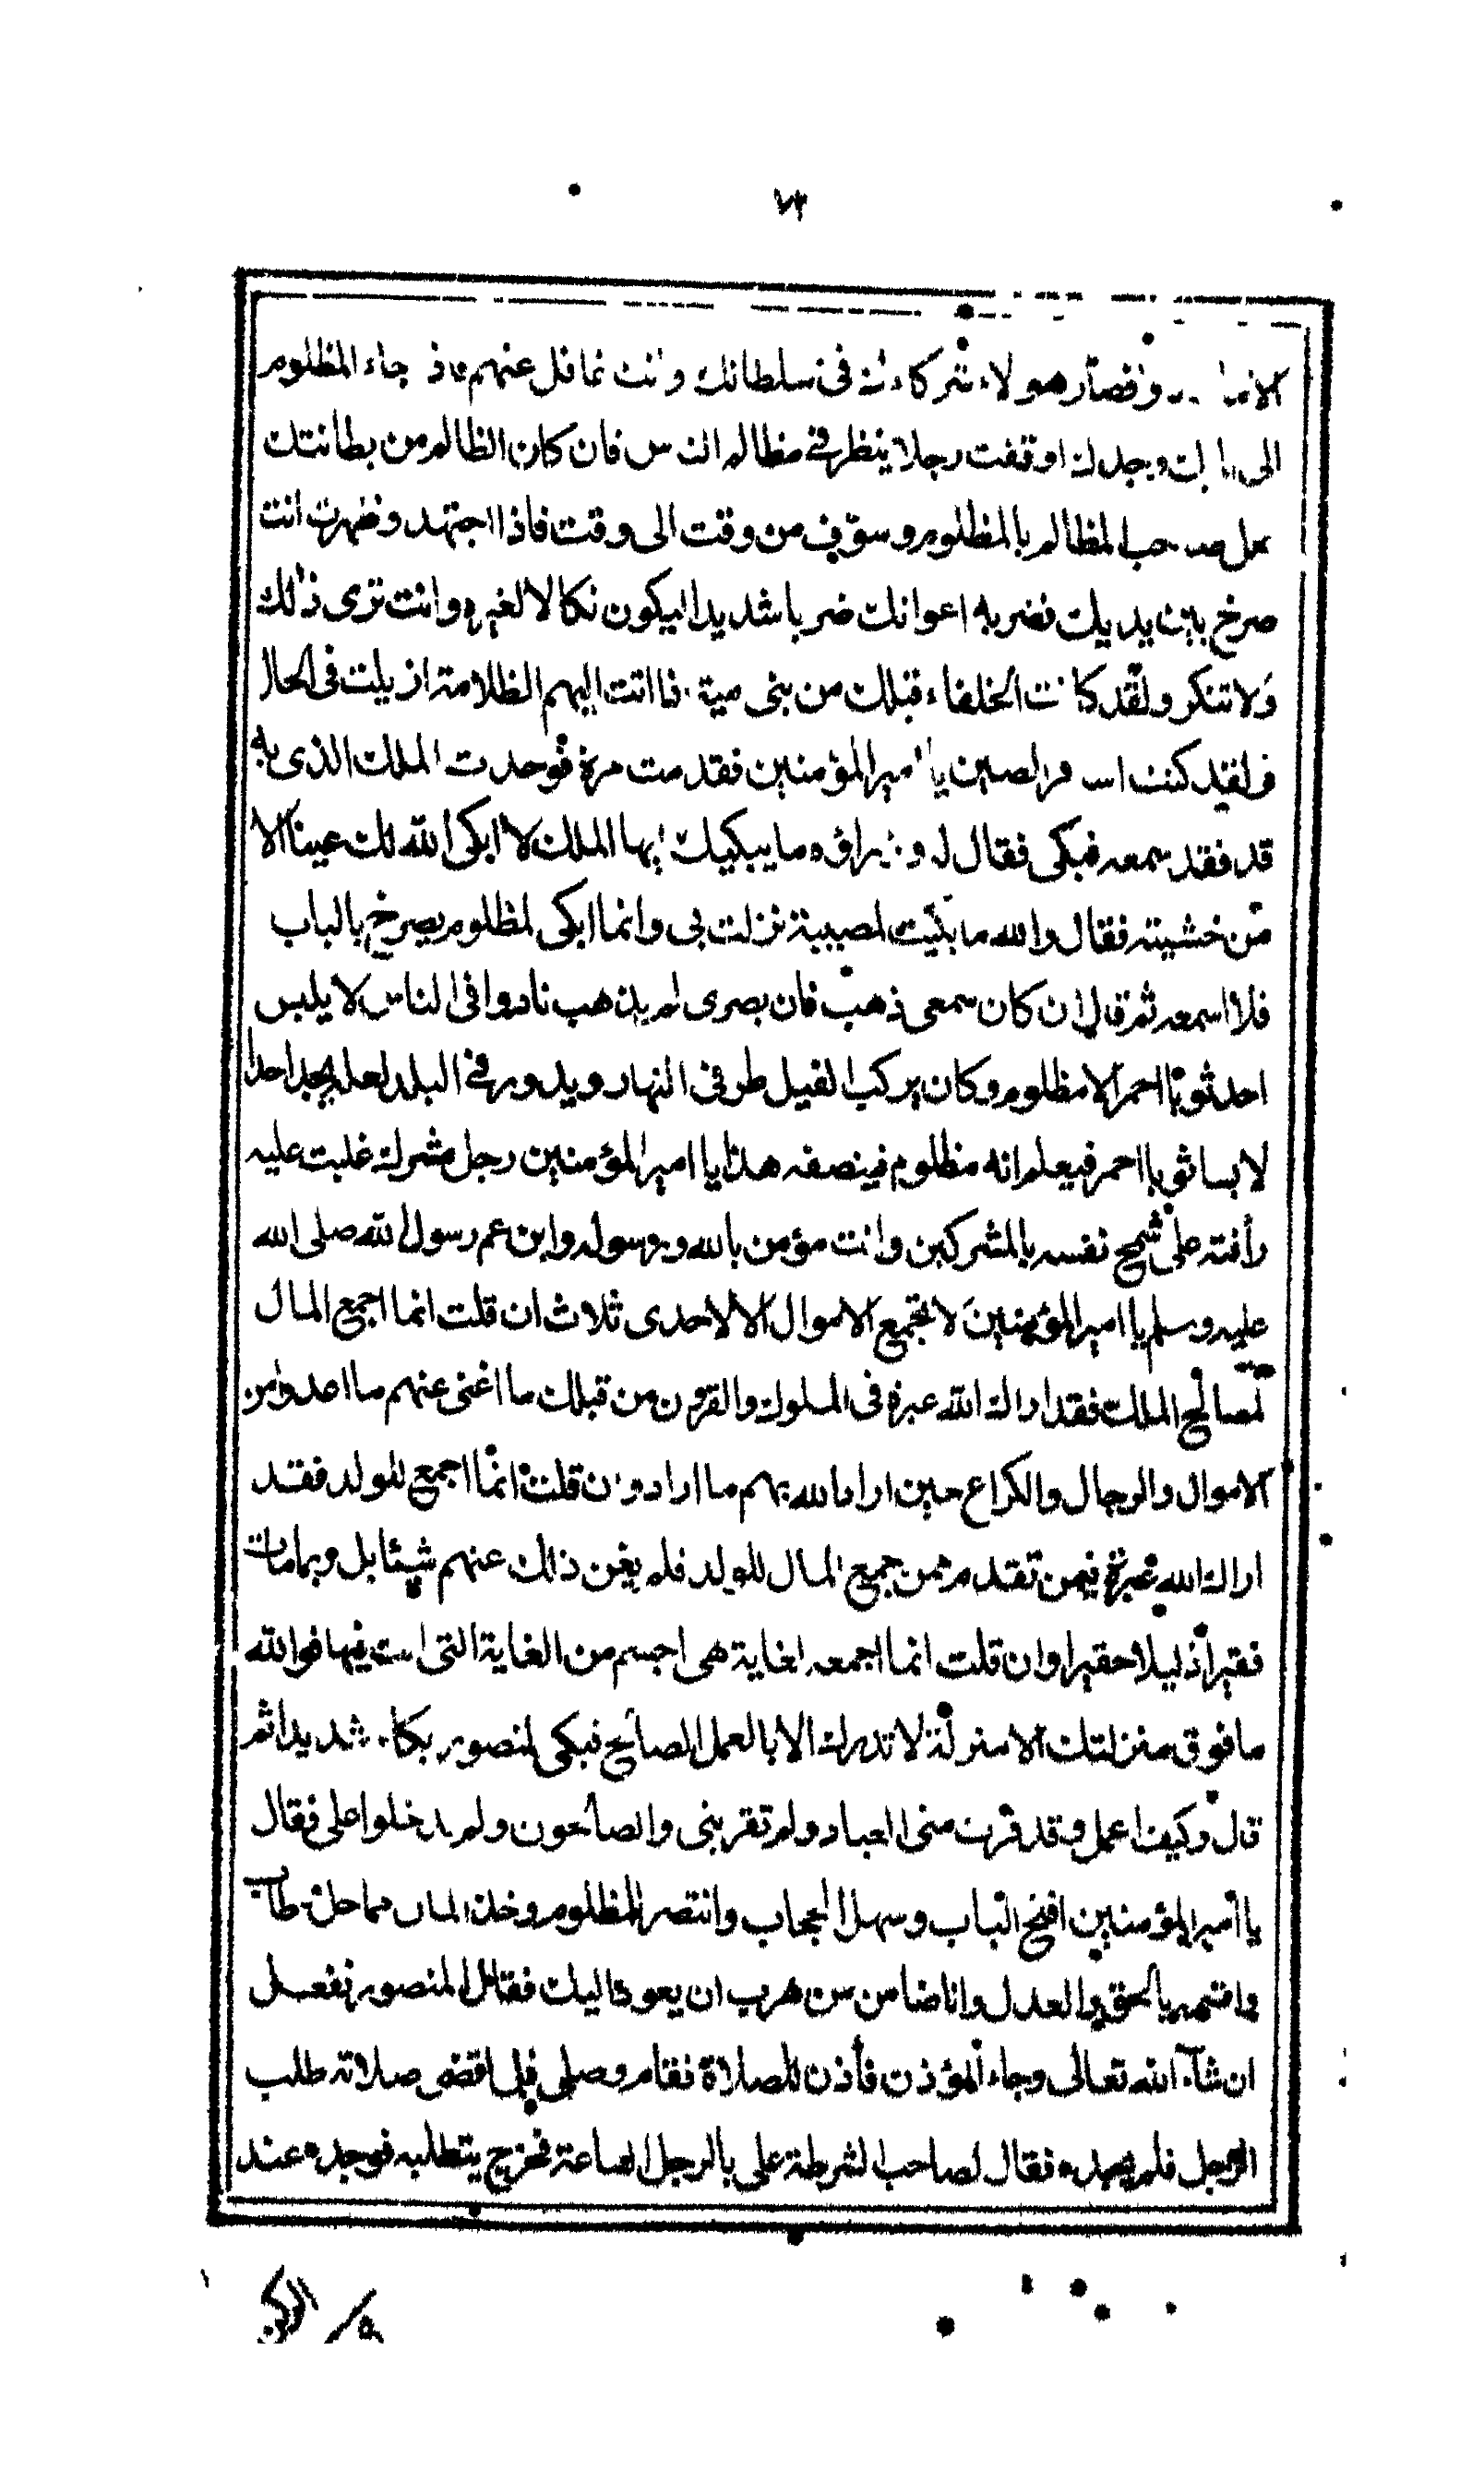 ٧٣
وفصار هولاء شركاءك في سلطانك وانت غافل عنهم فاذ جاء المظلوم
الى بابك وجدك اوقفت رجلا ينظر في مظالم الناس فان كان الظالم من بطانتك
علل صاحب المظالم بالمظلوم وسوف من وقت الى وقت فاذا اجتهد وظهرت انت
صرخ بين يديك فضربه اعوانك ضربا شديدا ليكون نكالا لغيره وانت ترى ذلك
ولا تنكر ولقد كانت الخلفاء قبلك من بني مية فا اتت اليهم الظلامة ازيلت في الحال
ولقد كنت اسافر الصين يا امير المؤمنين فقدمت مرة فوجدت الملك الذي به
قد فقد سمعه فبكى فقال له وزراؤه ما يبكيك ايها الملك لا ابكى الله لك عينا الا
من خشيته فقال والله ما بكيت لمصيبة نزلت بي وانما ابكى لمظلوم يصرخ بالباب
فلا اسمعه ثم قال ان كان سمعي ذهب فان بصرى لم يذهب نادوا في الناس لا يلبس
احد ثوبا احمر الا مظلوم وكان يركب الفيل طرفي النهار ويدور في البلد لعله يجد احدا
لابسا ثوبا احمر فيعلم انه مظلوم فينصفه هذا يا امير المؤمنين رجل مشرك غلبت عليه
رأفته على شح نفسه بالمشركين وانت مؤمن بالله وبرسوله وابن عم رسول الله صلى الله
عليه وسلم يا امير المؤمنين لا تجمع الاموال الا لاحدى ثلاث ان قلت انما اجمع المال
لمصالح الملك فقد اراك الله عبرة في الملوك والقرون من قبلك ما اغنى عنهم ما اعدوا من
الاموال والرجال والكراع حين اراد الله بهم ما اراد وان قلت انما اجمع للولد فقد
اراك الله عبرة فيمن تقدم ممن جمع المال للولد فلم يغن ذلك عنهم شيئا بل ربما مات
فقيرا ذليلا حقيرا وان قلت انما اجمعه لغاية هي اجسم من الغاية التي انت فيها فوالله
ما فوق منزلتك الا منزلة لا تدرك الا بالعمل الصالح فبكى لمنصور بكاء شديدا ثم
قال وكيف اعمل وقد فرت مني العباد ولم تقربني والصالحون ولم يدخلوا على فقال
يا امير المؤمنين افتح الباب وسهل الحجاب وانتصر للمظلوم وخذ المال مما حل وطاب
واقسمه بالحق والعدل وانا ضامن من هرب ان يعود اليك فقال المنصور نفعل
ان شاء الله تعالى وجاء المؤذن فأذن للصلاة فقام وصلى فلما قضى صلاته طلب
الرجل فلم يجده فقال لصاحب الشرطة على بالرجل الساعة فخرج يتطلبه فوجده عند